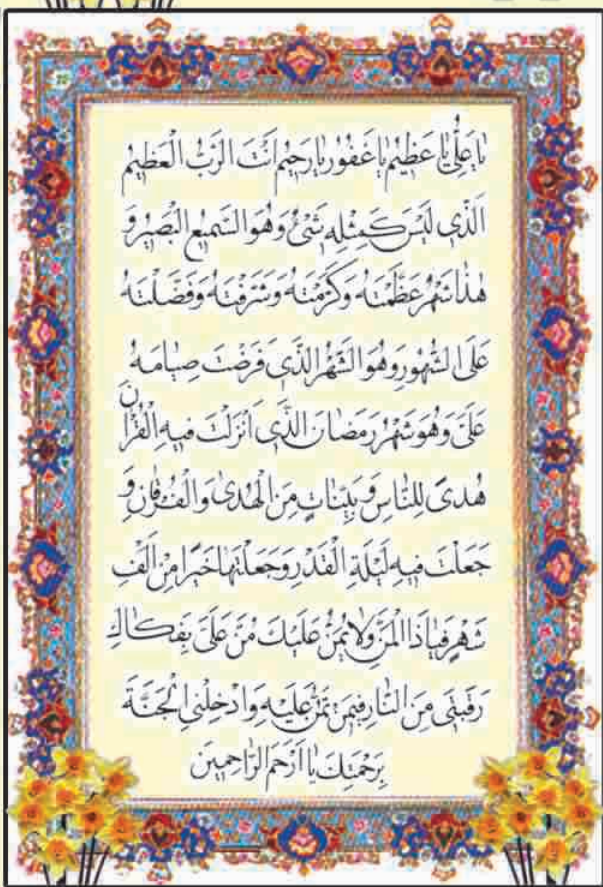 يَا عَلِيُّ يَا عَظِيمُ يَا غَفُورُ يَا رَحِيمُ اَنْتَ الرَّبُّ الْعَظِيمُ
الَّذِي لَيْسَ كَمِثْلِهِ شَيْءٌ وَهُوَ السَّمِيعُ الْبَصِيرُ وَ
هٰذَا شَهْرٌ عَظَّمْتَهُ وَكَرَّمْتَهُ وَشَرَّفْتَهُ وَفَضَّلْتَهُ
عَلَى الشُّهُورِ وَهُوَ الشَّهْرُ الَّذِي فَرَضْتَ صِيَامَهُ
عَلَيَّ وَهُوَ شَهْرُ رَمَضَانَ الَّذِي اَنْزَلْتَ فِيهِ الْقُرْاٰنَ
هُدىً لِلنَّاسِ وَبَيِّنَاتٍ مِنَ الْهُدىٰ وَالْفُرْقَانِ وَ
جَعَلْتَ فِيهِ لَيْلَةَ الْقَدْرِ وَجَعَلْتَهَا خَيْرًا مِنْ اَلْفِ
شَهْرٍ فَيَا ذَا الْمَنِّ وَلَا يُمَنُّ عَلَيْكَ مُنَّ عَلَيَّ بِفَكَاكِ
رَقَبَتِي مِنَ النَّارِ فِيمَنْ تَمُنُّ عَلَيْهِ وَاَدْخِلْنِي الْجَنَّةَ
بِرَحْمَتِكَ يَا اَرْحَمَ الرَّاحِمِينَ